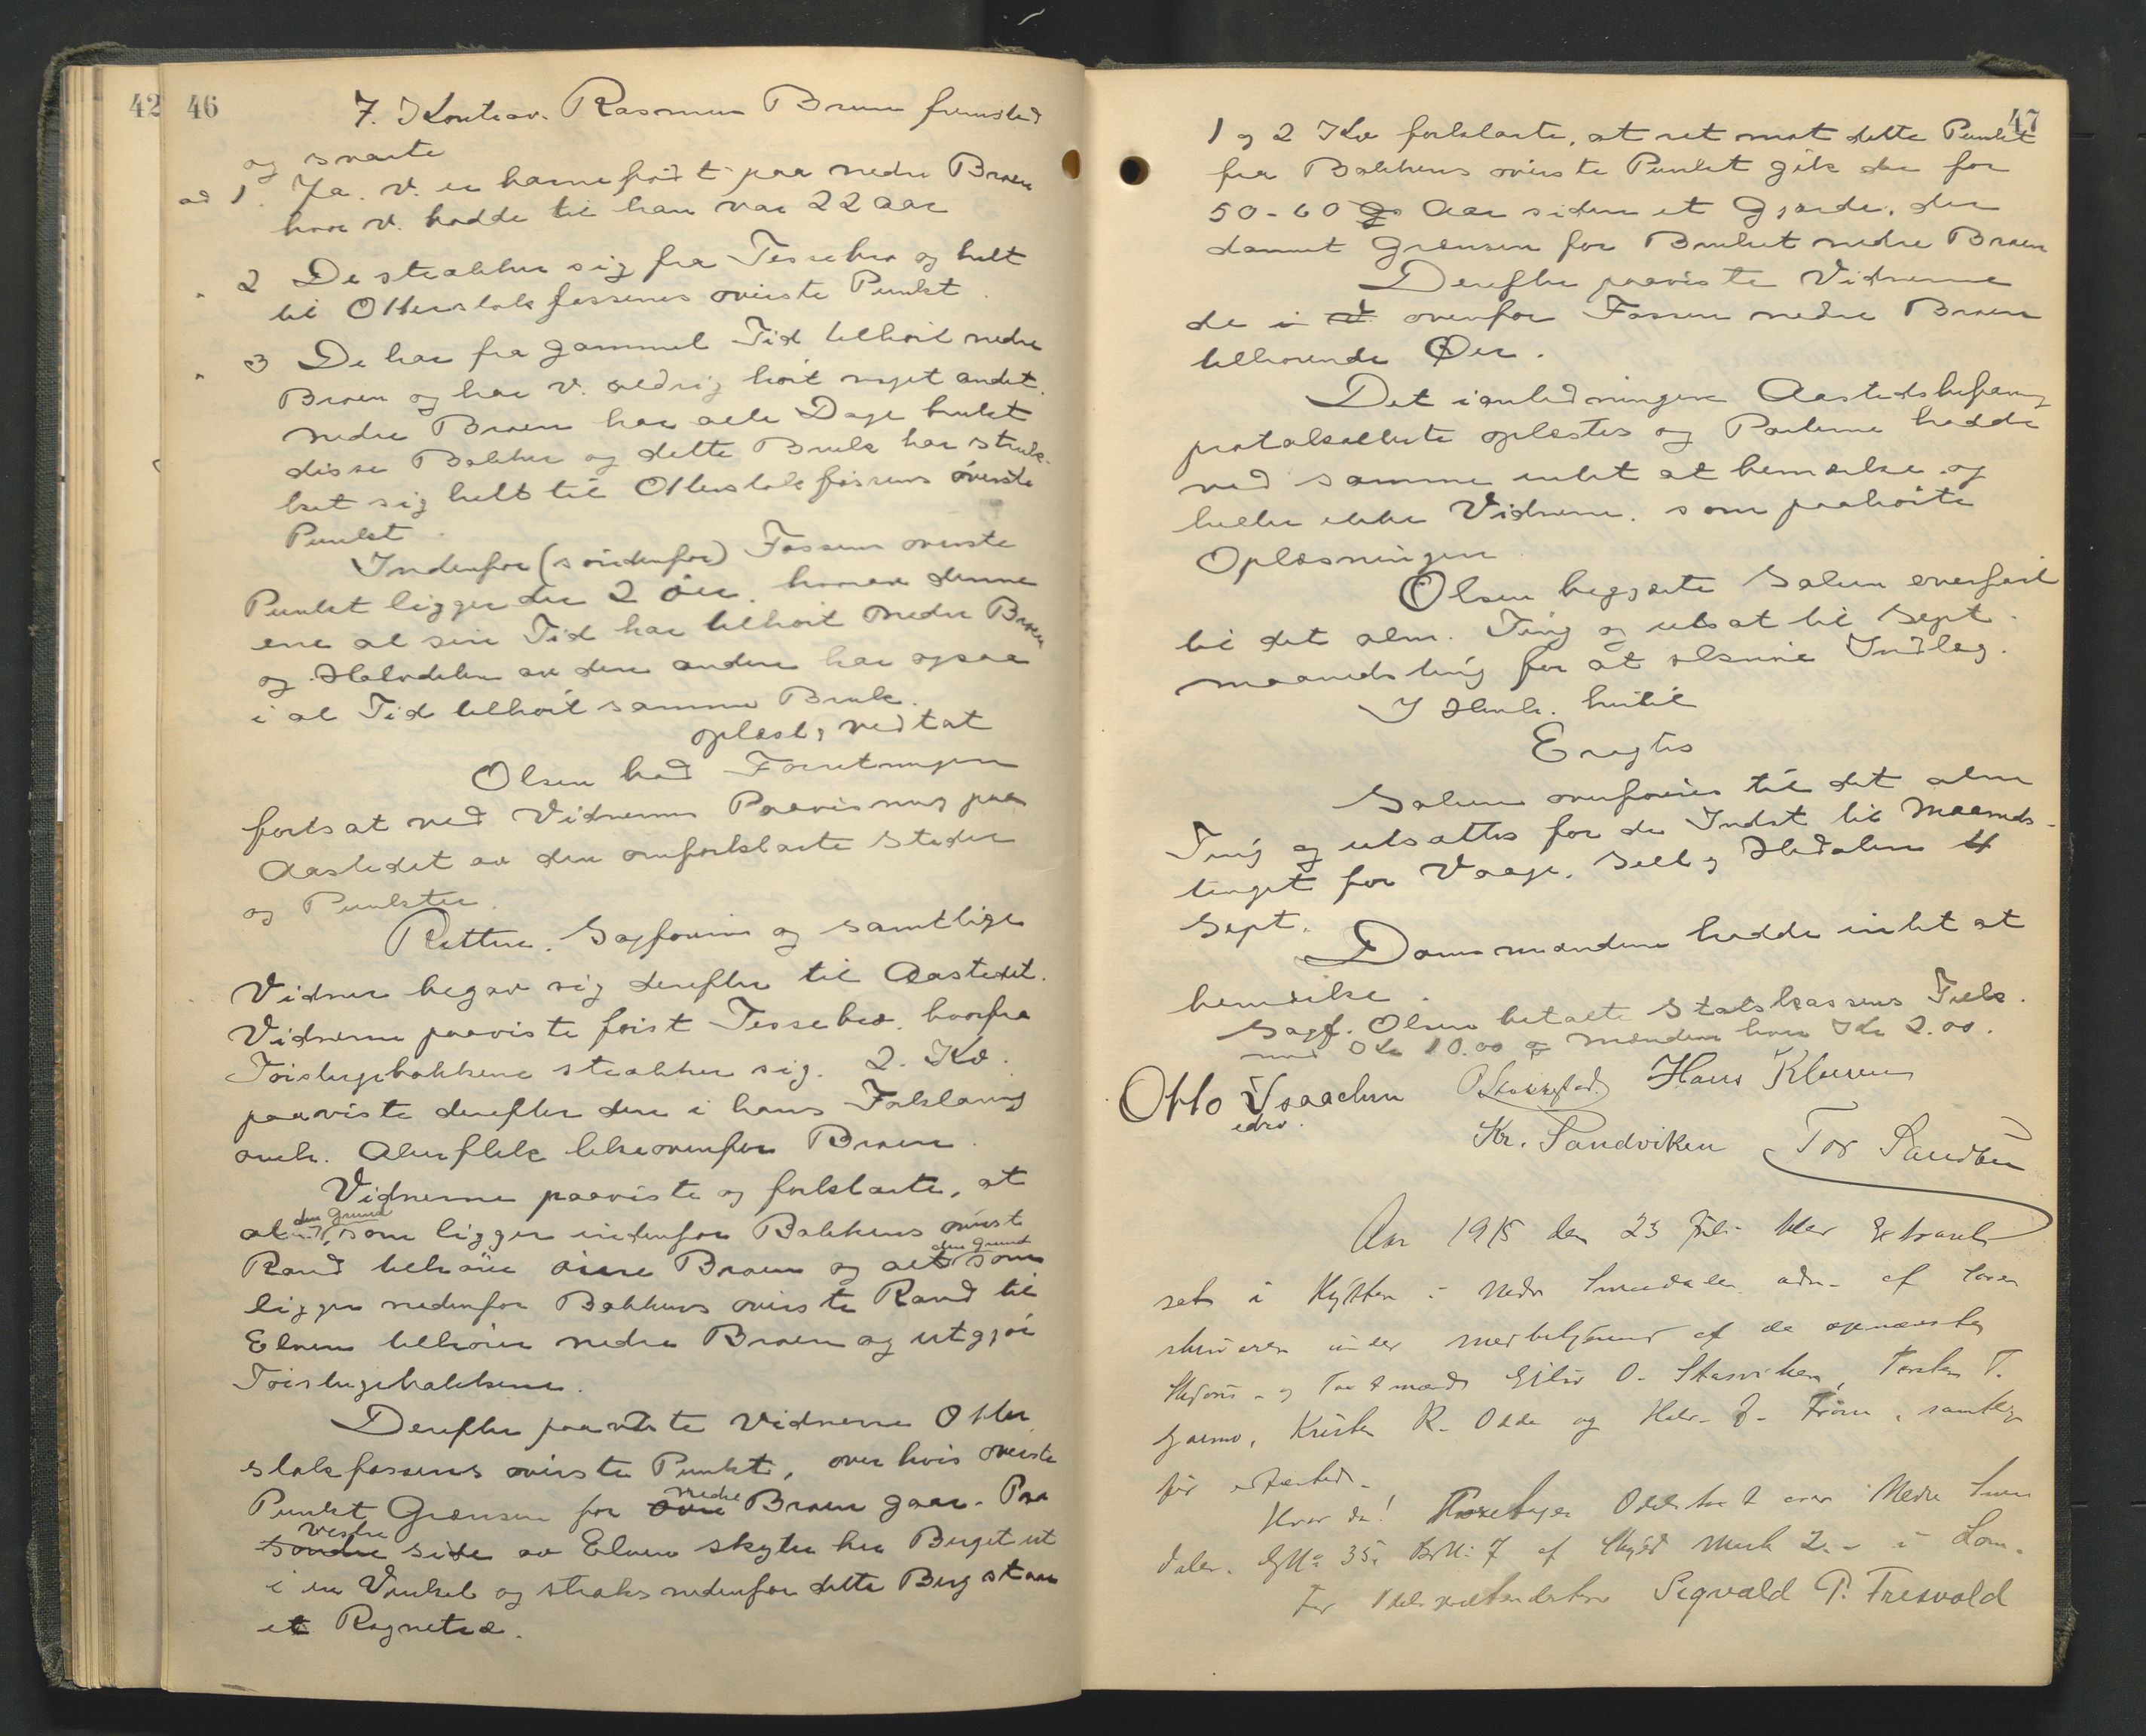 42 46
7. Kontrav. Rasmus Bruun fremstod
og svarte
ad 1. Ja. V. er barnefødt paa nedre Braen
hvor V. bodde til han var 22 aar
" 2 De strækker sig fra Tessebro og helt
til Otterstakfossenes øverste Punkt.
" 3 De har fra gammel Tid tilhørt nedre
Braen og har V. aldrig hørt noget andet.
nedre Braen har alle Dage brukt
disse Bakker og dette Bruk har struk-
ket sig helt til Otterstakfossens øverste
Punkt.
Indenfor (søndenfor) Fossens øverste
Punkt ligger der 2 øer, hvorav denne
ene al sin Tid har tilhørt nedre Braen
og Halvdelen av den anden har ogsaa
i al Tid tilhørt samme Bruk.
oplæst, vedtat
Olsen bad Forretningen
fortsat ved Vidnernes Paavisning paa
Aastedet av den omforklarte Steder
og Punkter.
Retten, Sagførerne og samtlige
Vidner begav sig derefter til Aastedet.
Vidnerne paaviste først Tessebro, hvorfra
Tøislugebakkene strækker sig. 2. Kv.
paaviste derefter den i hans Forklaring
omh. Akerflek like ovenfor Braen.
Vidnerne paaviste og forklarte, at
al den Grund som ligger indenfor Bakkens øverst
Rand tilhører øvre Braen og alt den Grund som
ligger nedenfor Bakkens øverste Rand til
Elven tilhører nedre Braen og utgjør
Tøislugebakkene.
Derefter paaviste Vidnerne Otter
stakfossens øverste Punkt, over hvis øverste
Punkt Grænsen for øvre nedre Braen gaar. Paa
søndre vestre side av Elven skyter her Berget ut
i en Vinkel og straks nedenfor dette Berg staar
et Rognetræ.
47
1 og 2 Kv forklarte, at ret mot dette Punkt
fra Bakkens øverste Punkt gik der for
50-60 Aar siden et Gjærde, der
dannet Grænsen for Bruket nedre Braen
Derefter paaviste Vidnerne
de i ovenfor Fossen nedre Braen
tilhørende Øer.
Det i anledningen Aastedsbefaring
protokollerte oplæstes og Parterne hadde
ved samme intet at bemærke og
heller ikke Vidnerne, som paahørte
Oplæsningen
Olsen begjærte Saken overført
til det alm. Ting og utsat til Sept.
maanedsting for at Indlæg.
I Henh. hertil
Eragtes
Saken overføres til det alm
Ting og utsattes for der Indst til Maaneds-
tinget for Vaage, Sell og Hedalen 4
Sept.
Domsmændene hadde intet at
bemærke.
Sagf. Olsen betalte Statskassens Tilk.
med Kr 10.00 og Mændene hver Kr 2.00.
Otto Isaachsen Hans Kleiven
edsv.
Kr. Sandviken Tor Sandbu
Aar 1915 den 23 Juli blev Extraret
sat i Hytten i Nedre Smeadalen adm. af Soren
skriveren under medbetjening af de opnævnte
Skjøns- og Takstmænd Eiliv O. Skarviken, Torsten T.
Garmo, Kristen R. Odde og Halv. J. Frøise, samtlige
før edfæstede.
Hvor da! Foretages Odelstakst over Nedre Smea
dalen. GNo 35. BrNo 7 af Skyld Mark 2. - i Lom.
For Sigvald P. Fresvold